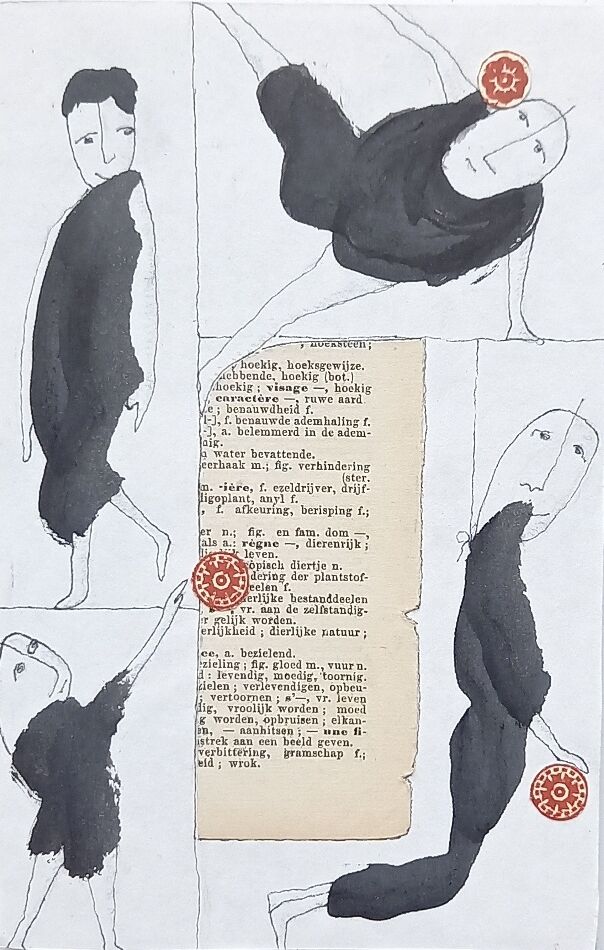 ; hoeksteen;
hoekig, hoeksgewijze.
hebbende, hoekig (bot.)
hoekig; visage —, hoekig
caractère —, ruwe aard
e; benauwdheid f.
f. benauwde ademhaling f.
a. belemmerd in de adem-
nig.
water bevattende.
eerhaak m.; fig. verhindering
(ster.
m. -ière, f. ezeldrijver, drijf-
digoplant, anyl f.
, f. afkeuring, berisping f.;
er n.; fig. en fam. dom —,
als a.: règne —, dierenrijk;
leven.
opisch diertje n.
dering der plantstof-
eelen f.
erlijke bestanddeelen
, vr. aan de zelfstandig-
gelijk worden.
erlijkheid; dierlijke natuur;
ee, a. bezielend.
zieling; fig. gloed m., vuur n.
: levendig, moedig, toornig.
zielen; verlevendigen, opbeu-
; vertoornen; s'—, vr. leven
dig, vroolijk worden; moed
g worden, opbruisen; elkan-
en, — aanhitsen; — une fi-
strek aan een beeld geven.
verbittering, gramschap f.;
eid; wrok.